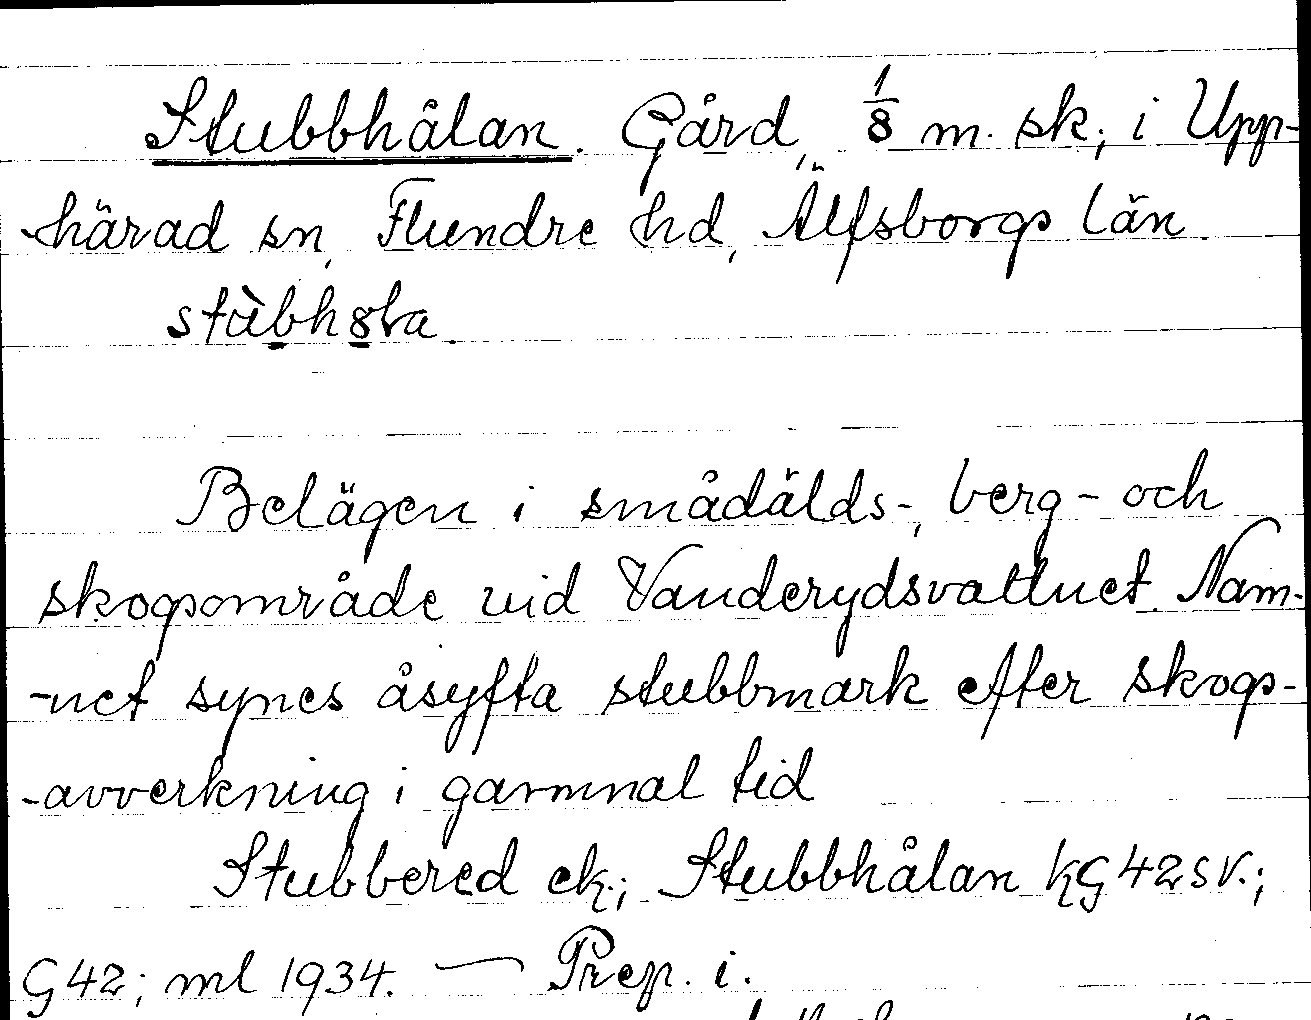 Stubbhålan. Gård, 1/8 m. sk; i Upp-
-härad sn, Flundre hd, Älfsborgs län.
stùbhꝏla.
Belägen i smådälds-, berg- och
skogsområde vid Vanderydsvattnet. Nam-
-net synes åsyfta stubbmark efter skogs-
-avverkning i gammal tid
Stubbered ek.; Stubbhålan kG42SV.;
G42; ml 1934. — Prep. i.